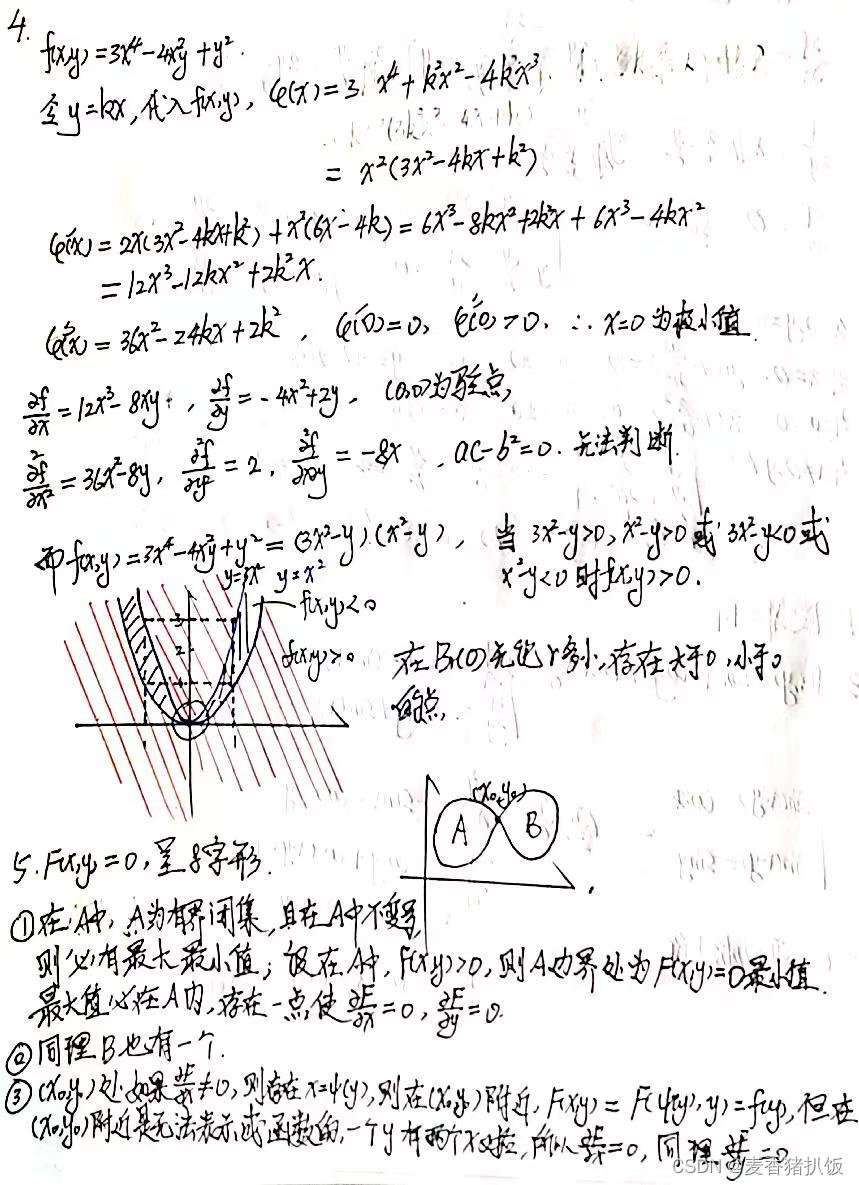 4.
f(x,y)=3x⁴-4x²y+y².
令y=kx,代入f(x,y), φ(x)=3x⁴+k²x²-4kx³
= x²(3x²-4kx+k²)
φ'(x)=2x(3x²-4kx+k²)+x²(6x-4k)=6x³-8kx²+2k²x+6x³-4kx²
=12x³-12kx²+2k²x.
φ''(x)=36x²-24kx+2k², φ'(0)=0, φ''(0)>0. ∴x=0为极小值.
∂f/∂x=12x³-8xy, ∂f/∂y=-4x²+2y, (0,0)为驻点,
∂²f/∂x²=36x²-8y, ∂²f/∂y²=2, ∂²f/∂x∂y=-8x, ac-b²=0. 无法判断.
而f(x,y)=3x⁴-4x²y+y²=(3x²-y)(x²-y), 当3x²-y>0,x²-y>0或3x²-y<0或
x²-y<0时f(x,y)>0.
y=3x² y=x²
f(x,y)<0
f(x,y)>0
3
2
1
在Br(0)无论r多小,存在大于0,小于0
的点.
(x₀,y₀)
A B
5. F(x,y)=0,呈8字形.
①在A中,A为有界闭集,且在A中不变号,
则必有最大最小值;设在A中,F(x,y)>0,则A边界处为F(x,y)=0最小值.
最大值必在A内,存在一点,使∂F/∂x=0, ∂F/∂y=0.
②同理B也有一个.
③(x₀,y₀)处如果∂F/∂x≠0,则存在x=ψ(y),则在(x₀,y₀)附近,F(x,y)=F(ψ(y),y)=f(y),但在
(x₀,y₀)附近是无法表示成函数的,一个y有两个x对应,所以∂F/∂x=0,同理∂F/∂y=0
CSDN @麦香猪扒饭